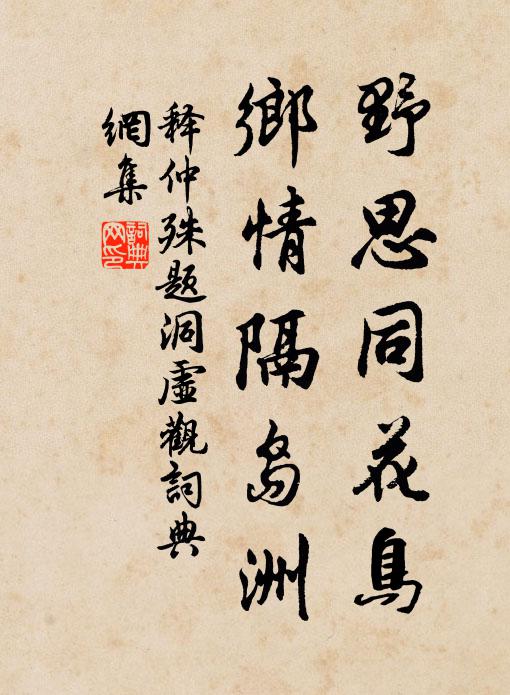 野思同花鳥
鄉情隔島洲
釋仲殊題洞虛觀詞典
網集
詞典
网印